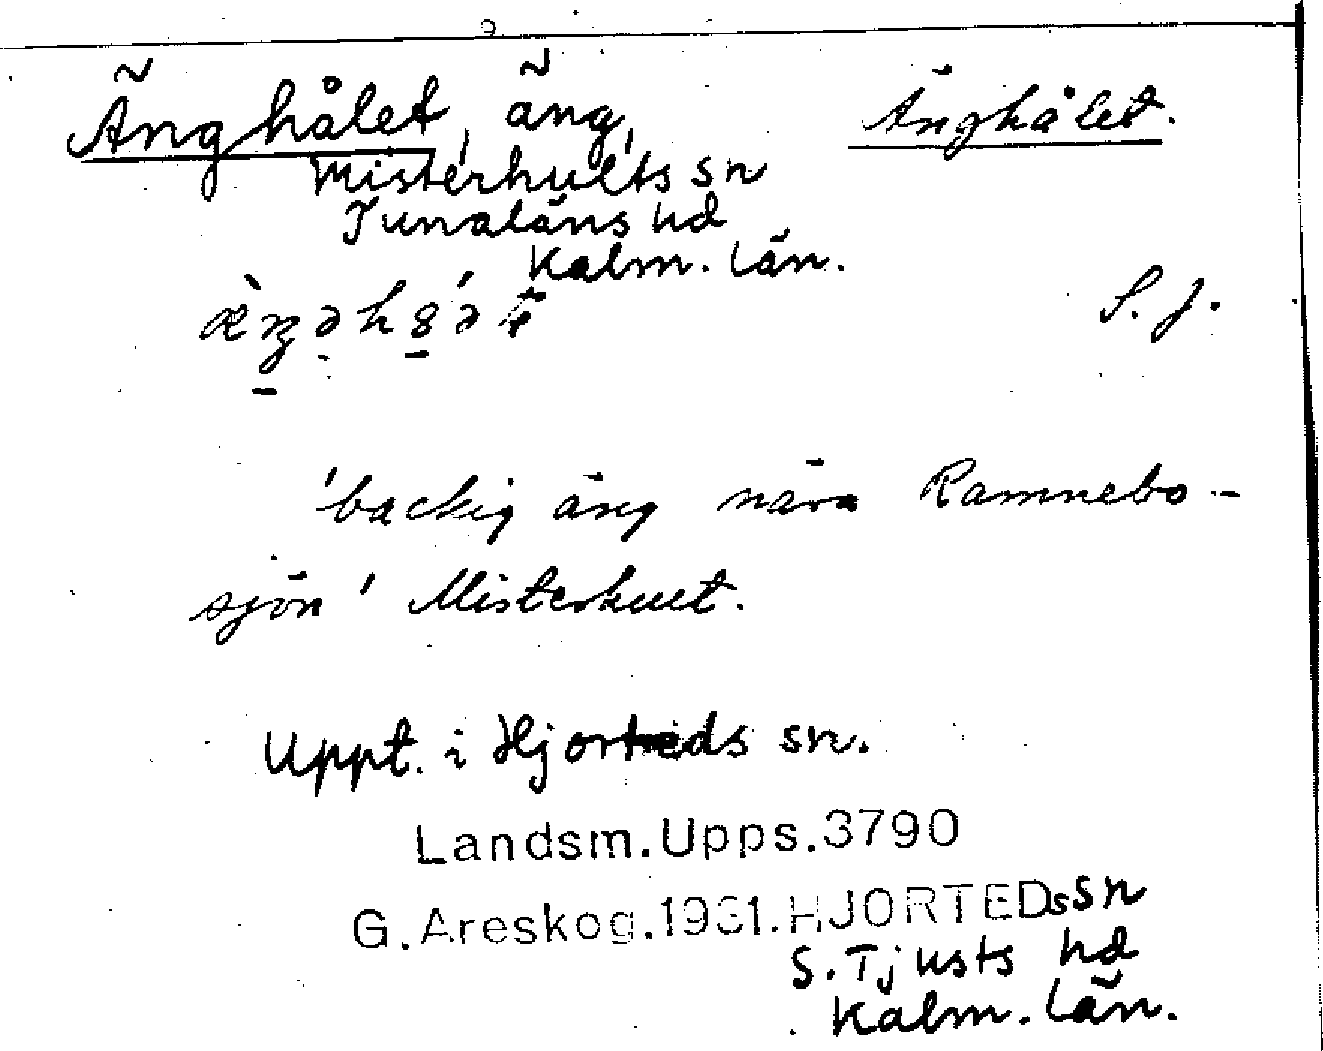 Änghålet, äng, Änghålet.
Misterhults sn
Tunaläns hd
Kalm. län.
S. f.
'backig äng nära Ramnebo-
sjön' Misterhult.
Uppt. i Hjorteds sn.
Landsm.Upps.3790
G.Areskog.1931.HJORTEDs sn
S. Tjusts hd
Kalm. län.